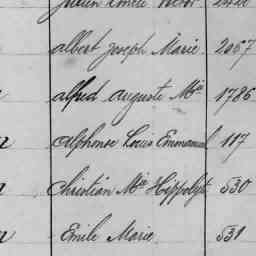 Julien Emile Victor 2420
albert Joseph Marie 2057
alfred auguste Mie 1786
alphonse Louis Emmanuel 117
Christian Mie Hippolyte 530
Emile Marie 531